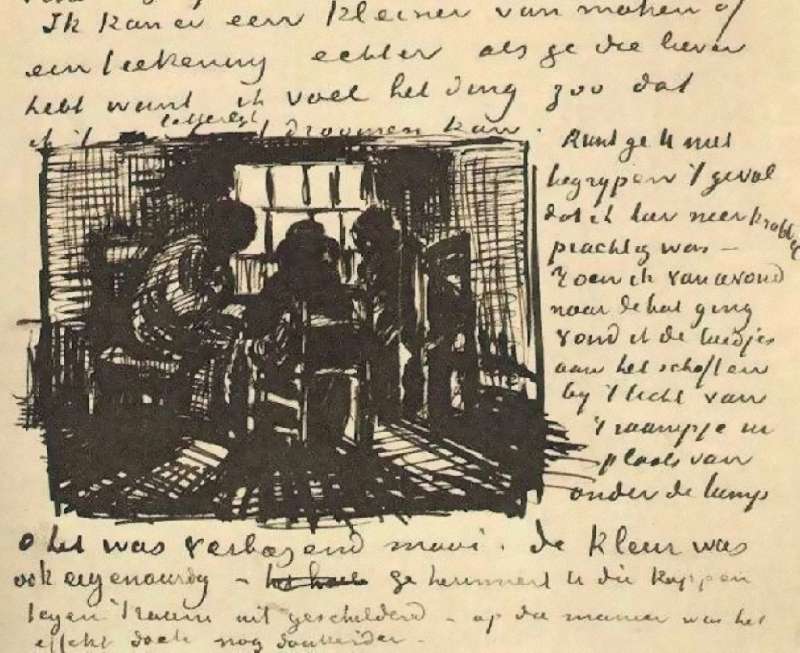 Ik kan er een kleiner van maken of
een teekening echter als ge die liever
hebt want ik voel het ding zoo dat
ik 't letterlijk droomen kan.
Kunt ge u niet
begrypen 't geval
dat ik hier neerkrabbel
prachtig was —
Toen ik van avond
naar de hut ging
vond ik de luidjes
aan het schoften
by 't licht van
't raampje in
plaats van
onder de lamp
o het was verbazend mooi. de kleur was
ook eigenaardig — ge herinnert u die koppen
tegen 't raam uit geschilderd — op die manier was het
effekt doch nog donkerder —